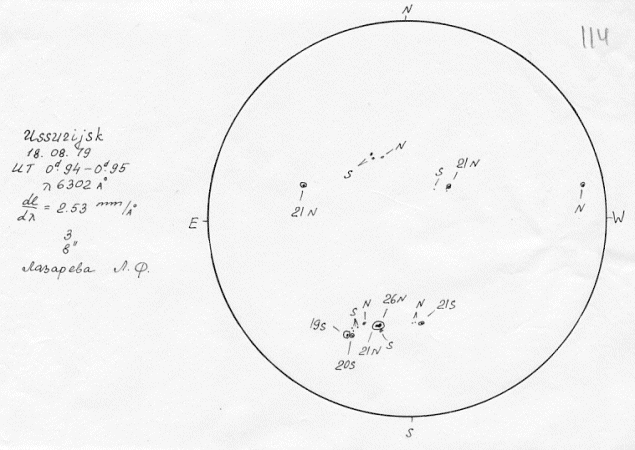 N
114
Ussurijsk
18.08.79
UT 0ᵈ.94-0ᵈ.95
λ 6302 Å
dl/dλ = 2.53 mm/Å
3
8"
Лазарева Л.Ф.
N
S
S
21N
21N
N
E
W
26N
N
N
S
21S
19S
20S
21N
S
S